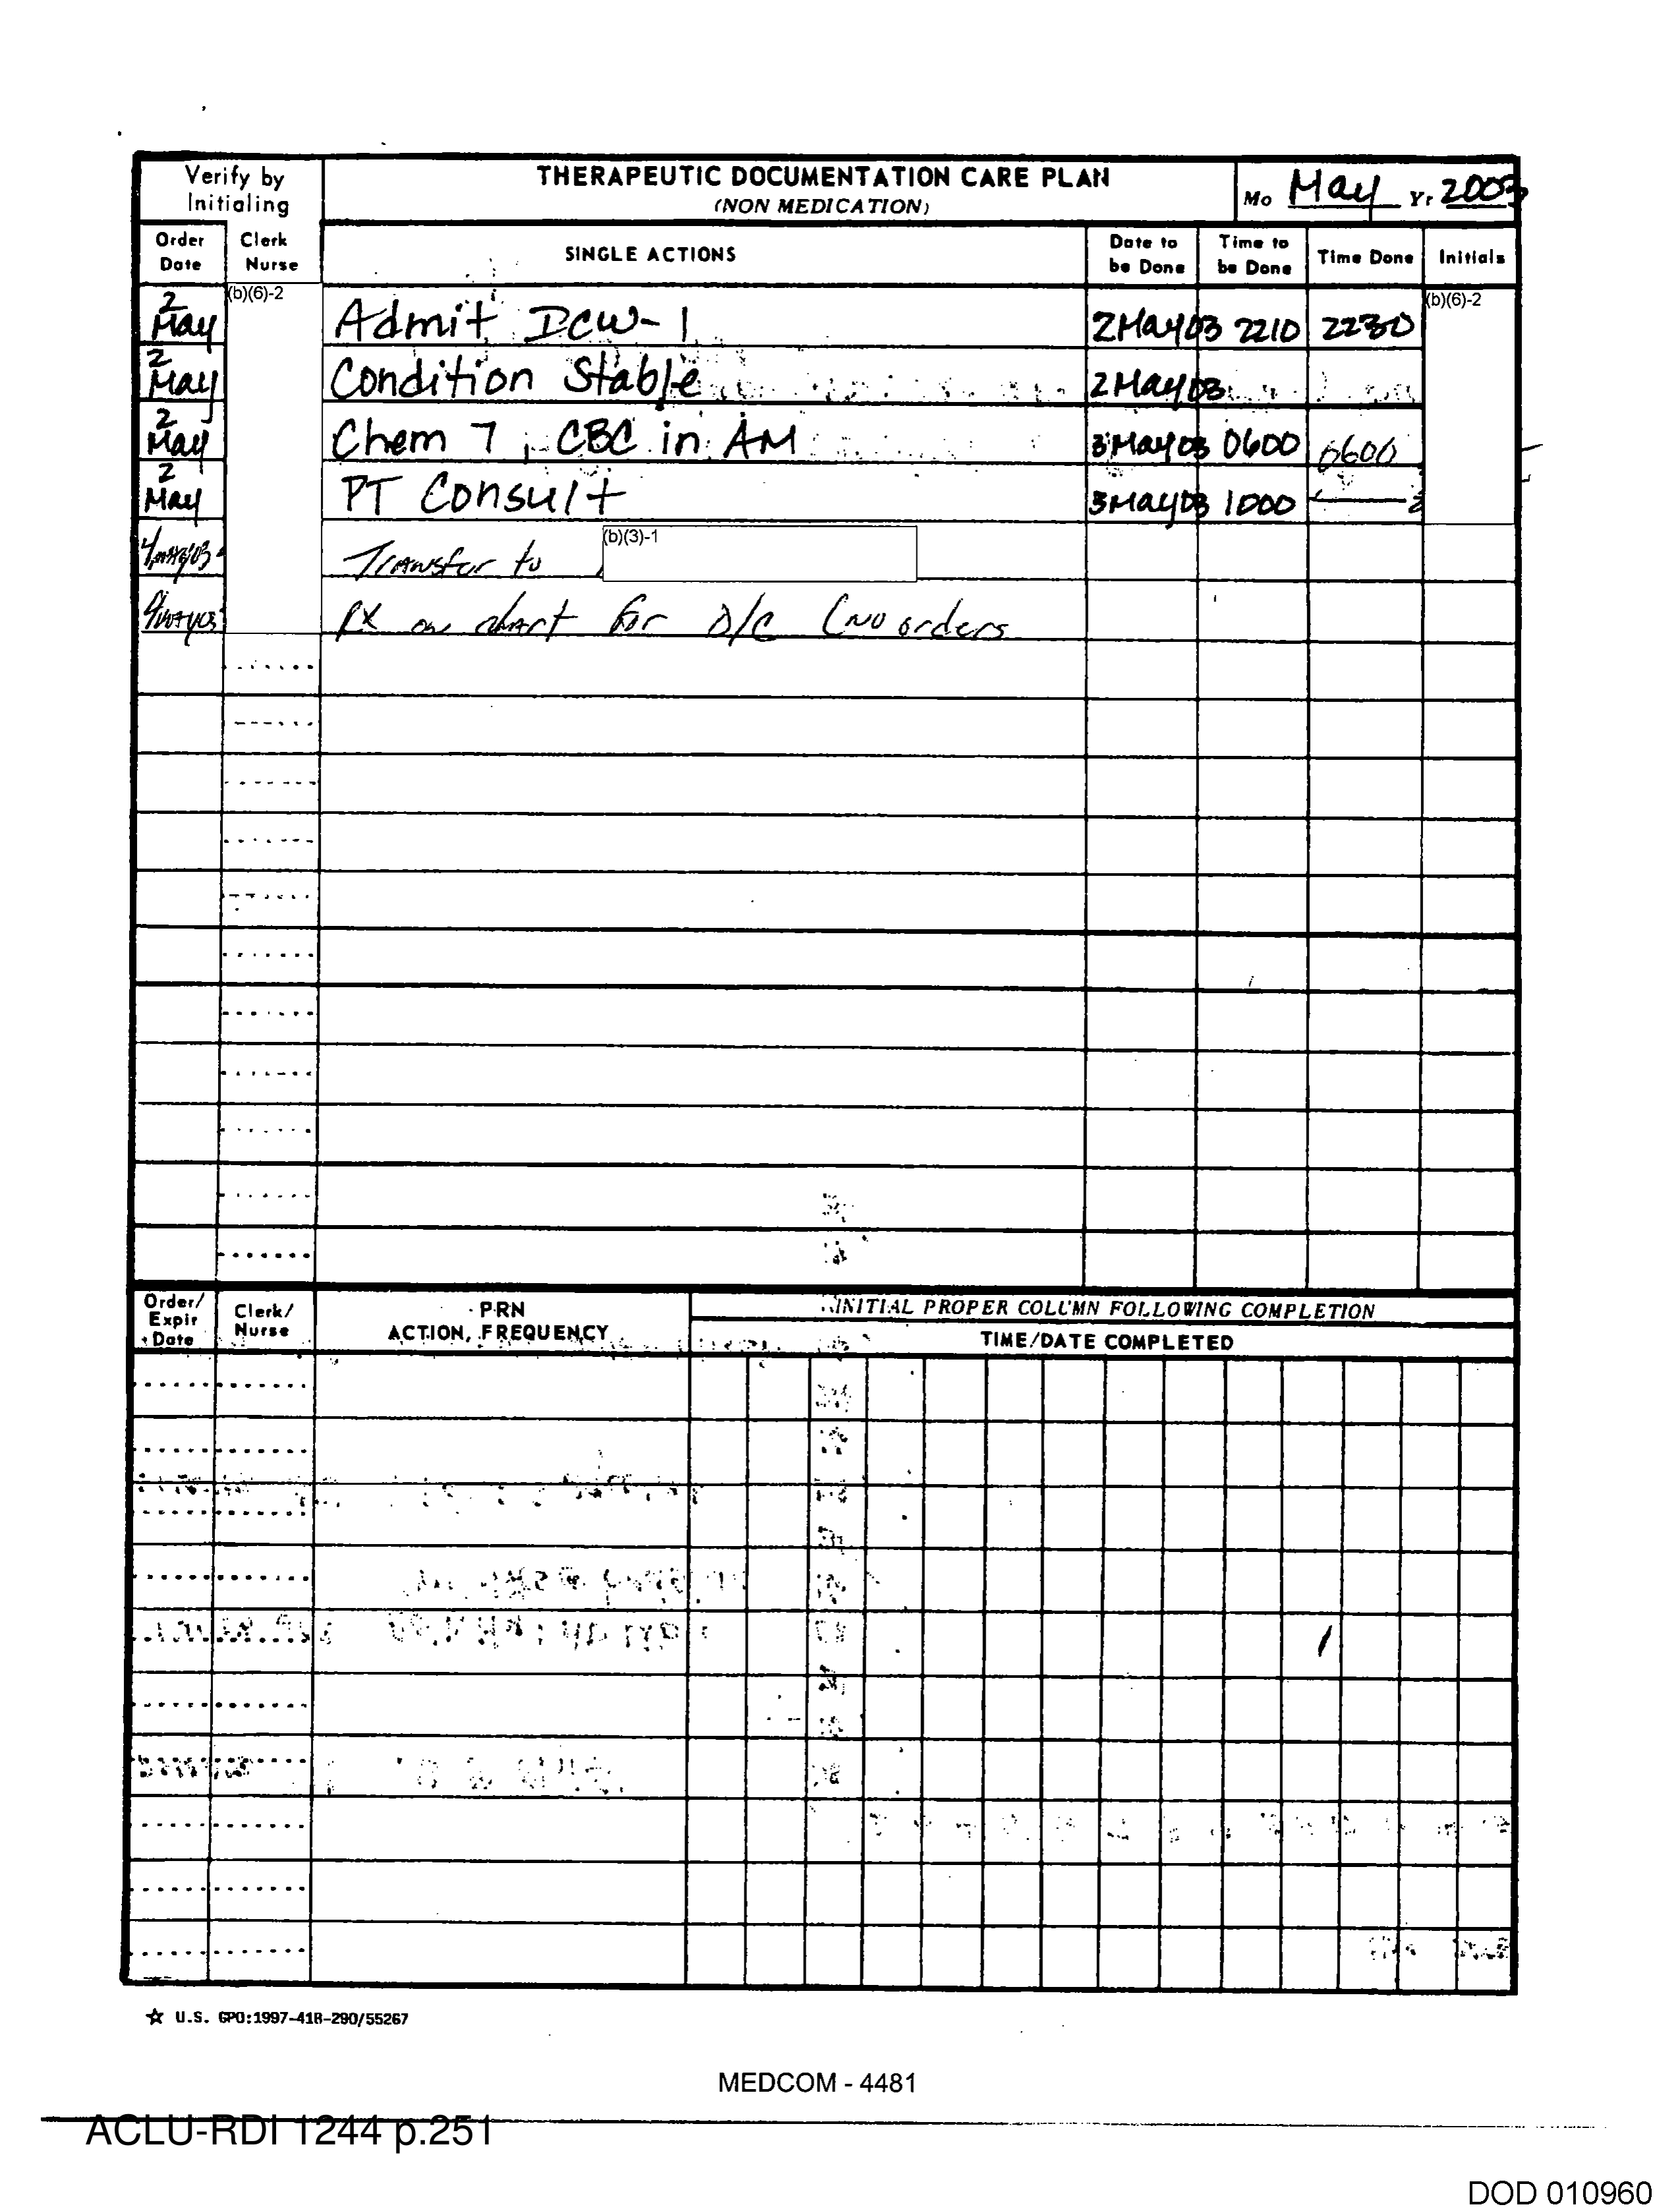 Verify by Initialing
THERAPEUTIC DOCUMENTATION CARE PLAN
(NON MEDICATION)
Mo May Yr 2003
Order Date Clerk Nurse SINGLE ACTIONS Date to be Done Time to be Done Time Done Initials
(b)(6)-2 (b)(6)-2
2 May Admit ICW-1 2May03 2210 2230
2 May Condition Stable 2May03
2 May Chem 7, CBC in AM 3May03 0600 0600
2 May PT Consult 3May03 1000
4May03 Transfer to (b)(3)-1
4May03 RX on chart for D/C (no orders
Order/ Expir Date Clerk/ Nurse PRN ACTION, FREQUENCY INITIAL PROPER COLUMN FOLLOWING COMPLETION
TIME/DATE COMPLETED
☆ U.S. GPO:1997-418-290/55267
MEDCOM - 4481
ACLU-RDI 1244 p.251
DOD 010960